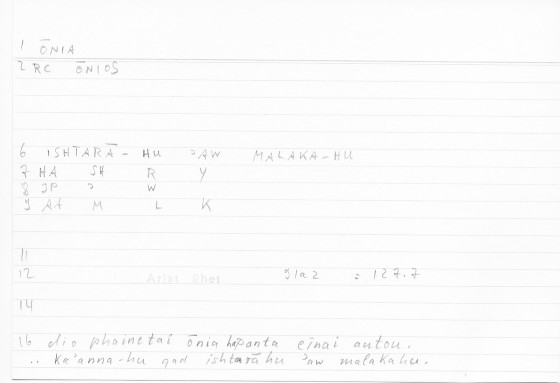 1 ŌNIA
2 RC ŌNIOS
6 ISHTARĀ-HU ʾAW MALAKA-HU
7 HA SH R Y
8 JP ʾ W
9 AA M L K
11
12 Arist Rhet 91a2 = 127.7
14
16 dio phainetai ōnia hapanta einai autou.
.. kaʾanna-hu qad ishtarāhu ʾaw malakahu.